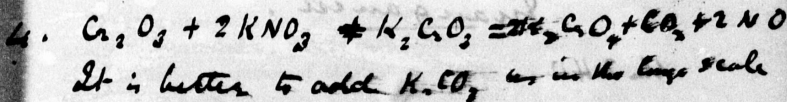 4. Cr₂O₃ + 2KNO₃ + K₂CO₃ = 2K₂CrO₄ + CO₂ + 2NO
It is better to add K₂CO₃ as in the large scale